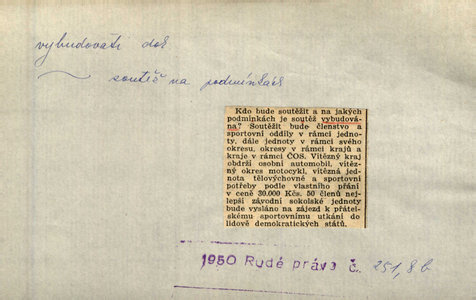 vybudovati dok
soutěž na podmínkách
Kdo bude soutěžit a na jakých
podmínkách je soutěž vybudová-
na? Soutěžit bude členstvo a
sportovní oddíly v rámci jedno-
ty, dále jednoty v rámci svého
okresu, okresy v rámci krajů a
kraje v rámci ČOS. Vítězný kraj
obdrží osobní automobil, vítěz-
ný okres motocykl, vítězná jed-
nota tělovýchovné a sportovní
potřeby podle vlastního přání
v ceně 30.000 Kčs. 50 členů nej-
lepší závodní sokolské jednoty
bude vysláno na zájezd k přátel-
skému sportovnímu utkání do
lidově demokratických států.
1950 Rudé právo č. 251, 8 b